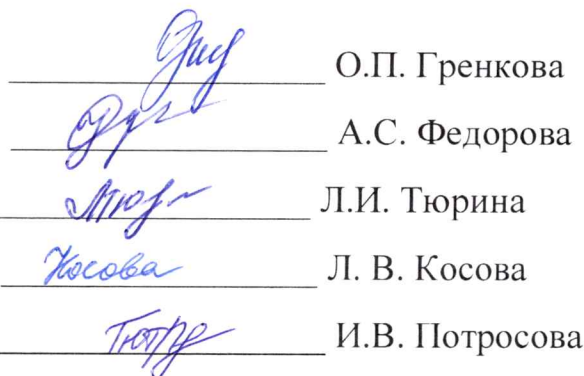 О.П. Гренкова
А.С. Федорова
Л.И. Тюрина
Косова Л. В. Косова
И.В. Потросова